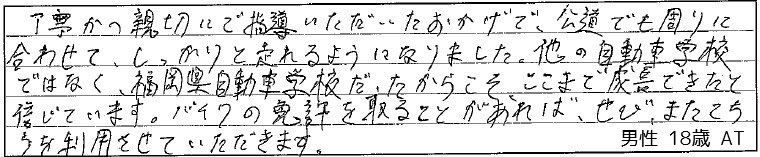 丁寧かつ親切にご指導いただいたおかげで、公道でも周りに
合わせて、しっかりと走れるようになりました。他の自動車学校
ではなく、福岡県自動車学校だったからこそここまで成長できたと
信じています。バイクの免許を取ることがあれば、ぜひ、またこち
らを利用させていただきます。
男性 18歳 AT